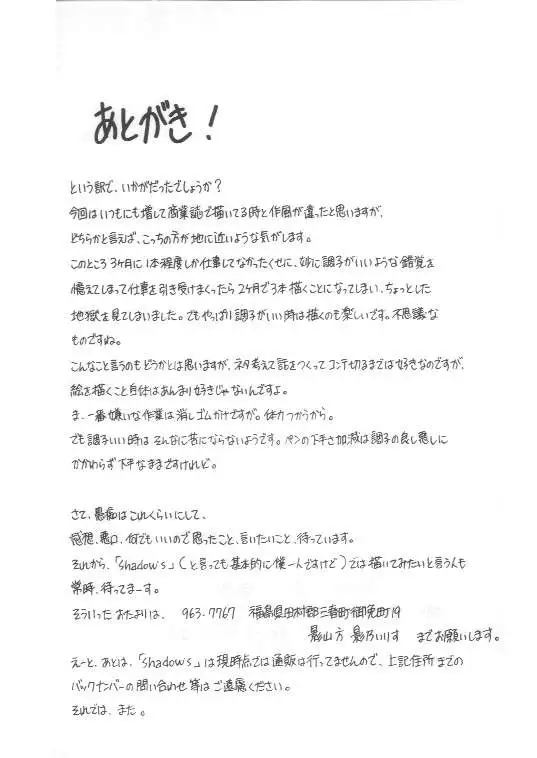 あとがき！
という訳で、いかがだったでしょうか？
今回はいつもにも増して商業誌で描いてる時と作風が違ったと思いますが、
どちらかと言えば、こっちの方が地に近いような気がします。
このところ3ヶ月に1本程度しか仕事してなかったくせに、妙に調子がいいような錯覚を
憶えてしまって仕事を引き受けまくったら2ヶ月で3本描くことになってしまい、ちょっとした
地獄を見てしまいました。でもやっぱり調子がいい時は描くのも楽しいです。不思議な
ものですね。
こんなこと言うのもどうかとは思いますが、ネタ考えて話をつくってコンテ切るまでは好きなのですが、
絵を描くこと自体はあんまり好きじゃないんですよ。
ま、一番嫌いな作業は消しゴムがけですが。体力つかうから。
でも調子いい時はそんなに苦にならないようです。ペンの下手さ加減は調子の良し悪しに
かかわらず下手なままですけれど。
さて、愚痴はこれくらいにして、
感想、悪口、何でもいいので思ったこと、言いたいこと、待っています。
それから、「Shadow's」(と言っても基本的に僕一人ですけど)では描いてみたいと言う人も
常時、待ってまーす。
そういったおたよりは、 963-7767 福島県田村郡三春町御免町19
影山方 影乃いりす までお願いします。
えーと、あとは、「Shadow's」は現時点では通販は行ってませんので、上記住所までの
バックナンバーの問い合わせ等はご遠慮ください。
それでは、また。